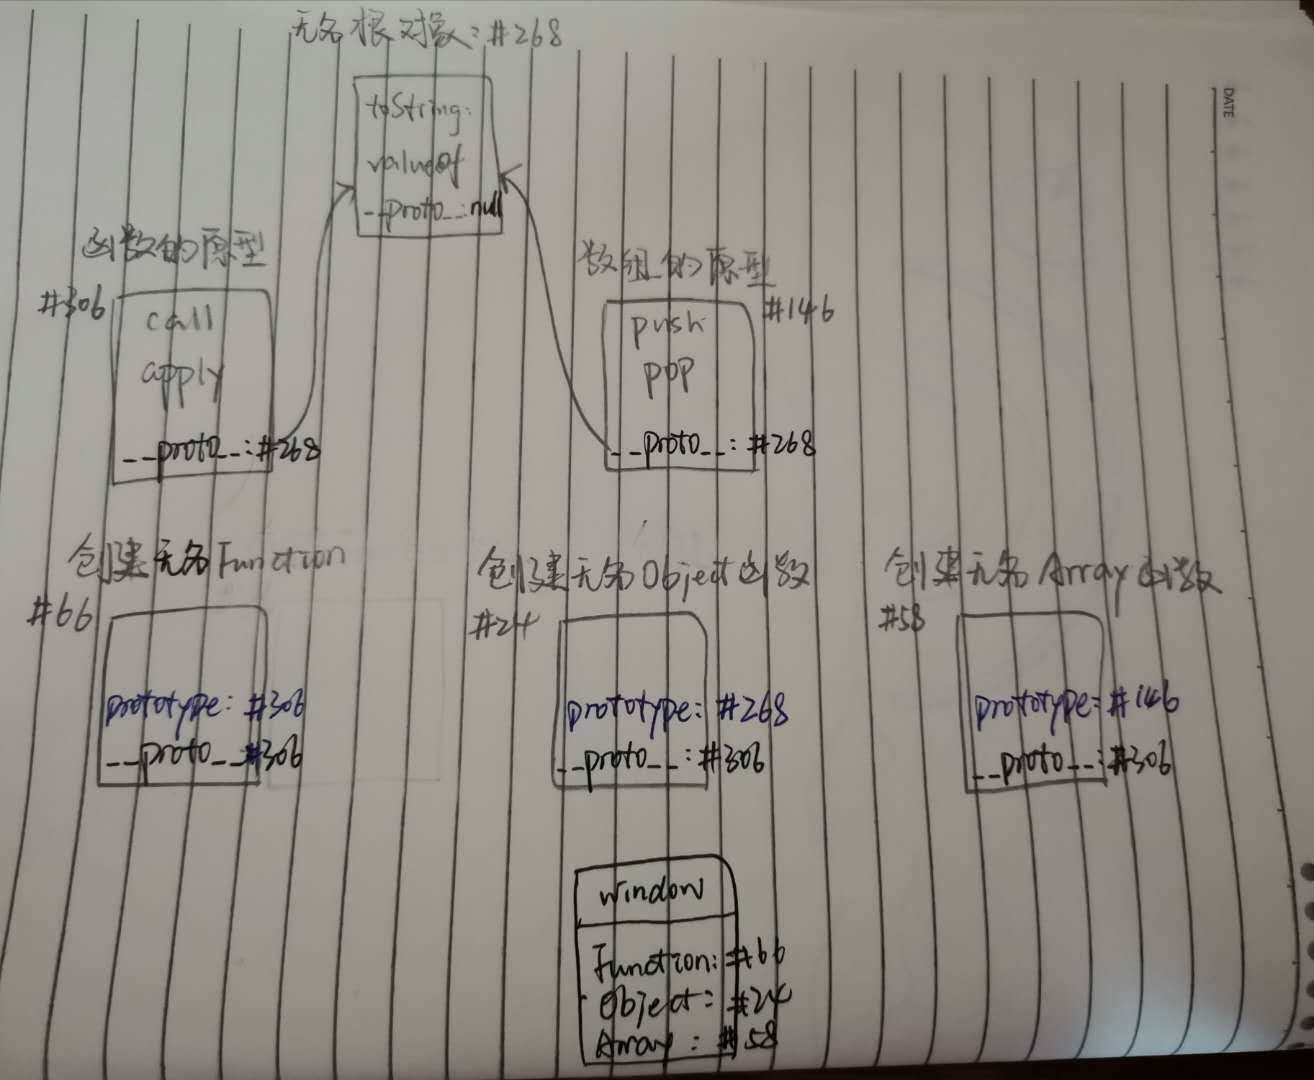 无名根对象:#268
toString:
valueof
__proto__:null
DATE
函数的原型
#306
call
apply
__proto__:#268
数组的原型
#146
push
pop
__proto__:#268
创建无名Function
#66
prototype:#306
__proto__#306
创建无名Object函数
#24
prototype:#268
__proto__:#306
创建无名Array函数
#58
prototype:#146
__proto__:#306
window
Function:#66
Object:#24
Array:#58